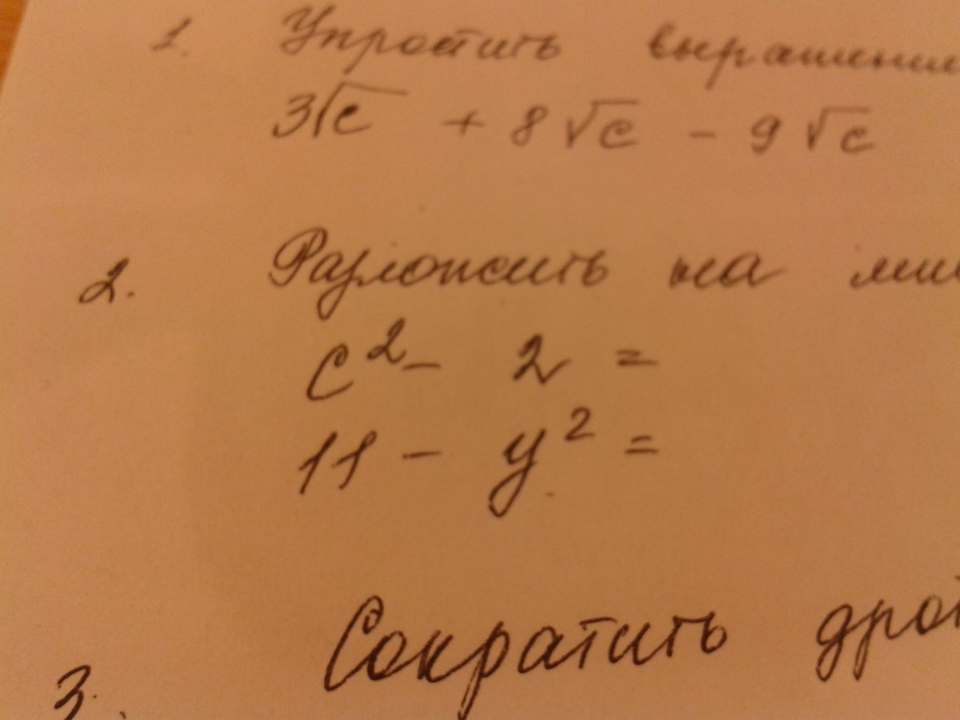 1. Упростить выражение
3√c + 8√c - 9√c
2. Разложить на
c² - 2 =
11 - y² =
3. Сократить